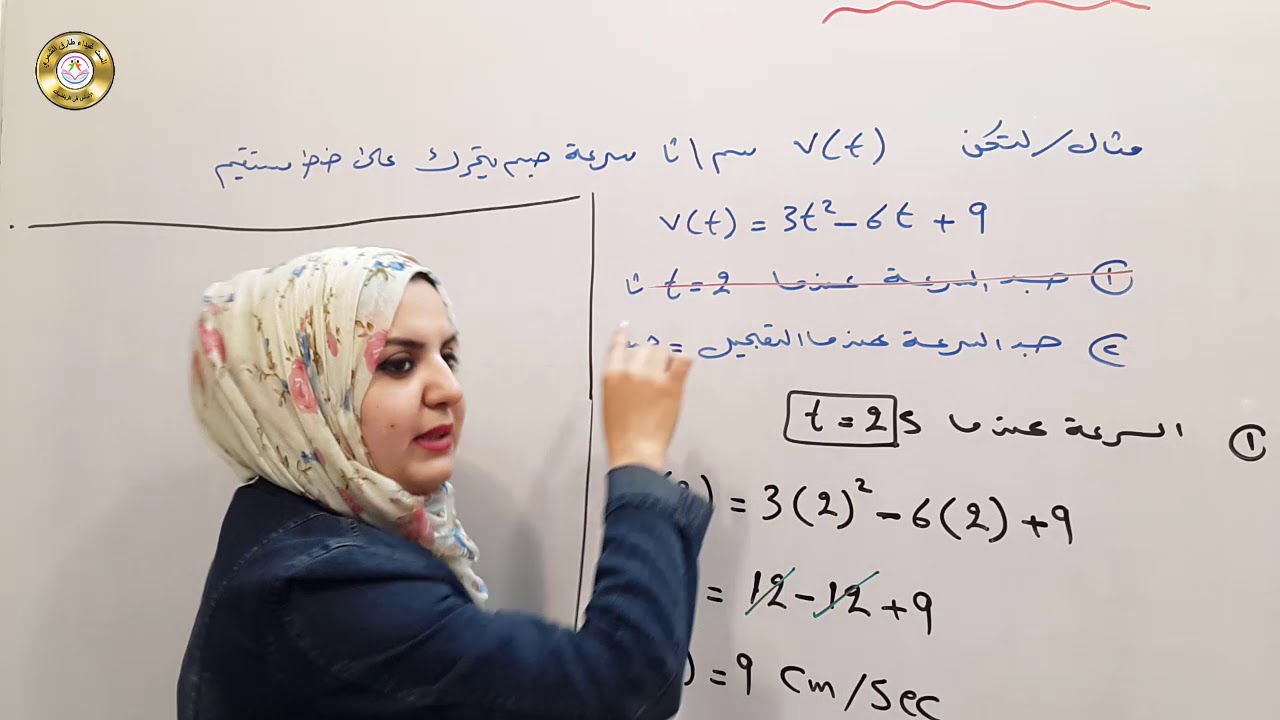 مثال/ لتكن v(t) سم/ثا سرعة جسم يتحرك على خط مستقيم
v(t) = 3t² - 6t + 9
① جد السرعة عندما t = 2 ثا
② جد السرعة عندما التعجيل =
① السرعة عندما t = 2 s
) = 3(2)² - 6(2) + 9
= 12 - 12 + 9
) = 9 cm/sec